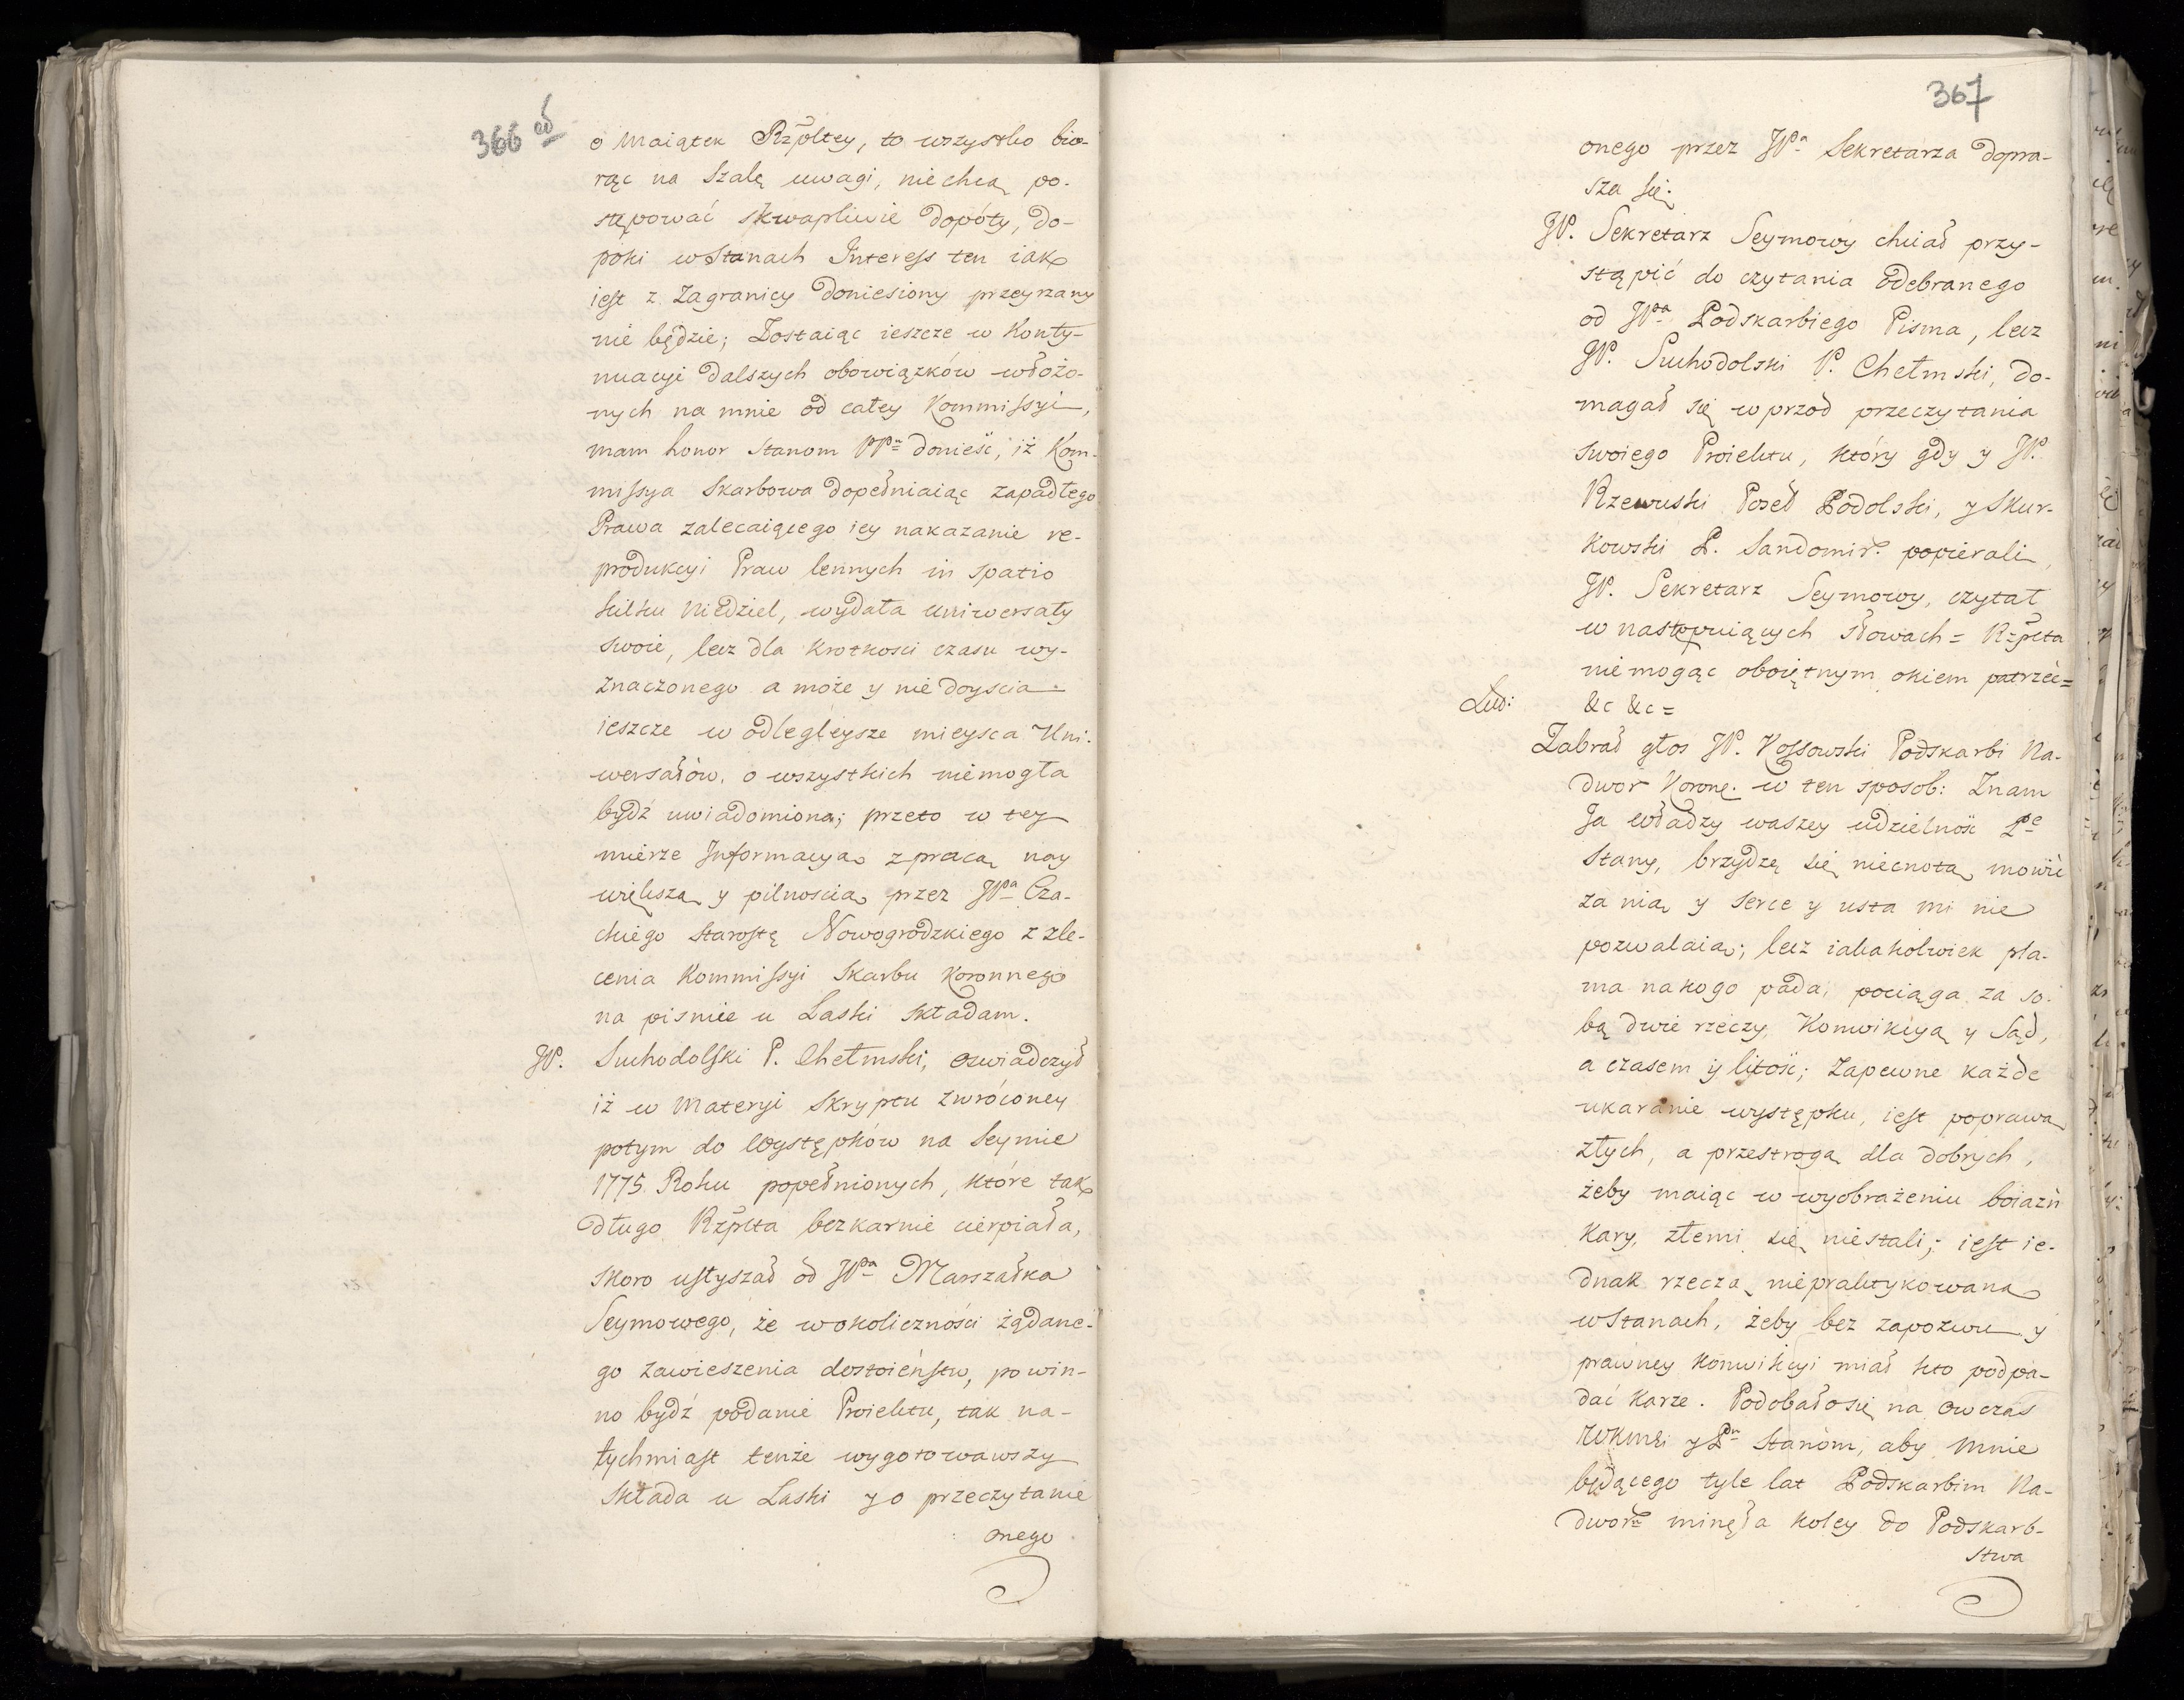 366 od
o Maiątek Rzpltey, to wszystko bio-
rąc na Szalę uwagi, nie chcą po-
stępować skwapliwie dopóty, do-
póki w Stanach Interess ten iak
iest z Zagranicy doniesiony przeyrzany
nie będzie; Zostaiąc ieszcze w Konty-
nuacyi dalszych obowiązków włożo-
nych na mnie od całey Kommissyi,
mam honor Stanom donieść, iż Kom-
missya Skarbowa dopełniaiąc zapadłego
Prawa zalecaiącego iey nakazanie re-
produkcyi Praw lennych in spatio
kilku Niedziel, wydała uniwersały
swoie, lecz dla krotkosci czasu wy-
znaczonego a może y nie doyscia
ieszcze w odlegleysze mieysca Uni-
wersałów, o wszystkich nie mogła
bydź uwiadomiona; przeto w tey
mierze Informacyą z pracą nay
większą y pilnoscią przez JPa Cza-
ckiego Starostę Nowogrodzkiego z zle-
cenia Kommissyi Skarbu Koronnego
na pismie u Laski składam.
JP. Suchodolski P. Chełmski, oswiadczył
iż w Materyi Skryptu zwróconey
potym do Występków na Seymie
1775 Roku popełnionych, które tak
długo Rzplta bezkarnie cierpiała,
skoro usłyszał od JPa Marszałka
Seymowego, że w okoliczności żądane-
go zawieszenia dostoieństw, powin-
no bydź podanie Proiektu, tak na-
tychmiast tenże wygotowawszy
składa u Laski y o przeczytanie
onego
367
onego przez JPa Sekretarza dopra-
sza się.
JP. Sekretarz Seymowy chciał przy-
stąpić do czytania odebranego
od JPa Podskarbiego Pisma, lecz
JP. Suchodolski P. Chełmski, do-
magał się wprzod przeczytania
swoiego Proiektu, który gdy y JP.
Rzewuski Poseł Podolski, y Skur-
kowski P. Sandomir. popierali,
JP. Sekretarz Seymowy, czytał
w następuiących słowach = Rzplta
nie mogąc oboiętnym okiem patrzeć =
&c &c =
Zabrał głos JP. Kossowski Podskarbi Na-
dwor Koronę. w ten sposob: Znam
Ja władzy waszey udzielność
Stany, brzydzę się niecnotą, mowić
za nią y serce y usta mi nie
pozwalaią; lecz iakakolwiek pla-
ma na kogo pada, pociąga za so-
bą dwie rzeczy, Konwikcyą y Sąd,
a czasem y litość; Zapewne każde
ukaranie występku, iest poprawą
złych, a przestrogą dla dobrych,
żeby maiąc w wyobrażeniu boiazń
kary, złemi się nie stali; iest ie-
dnak rzeczą niepraktykowaną
w Stanach, żeby bez zapozwu y
prawney konwikcyi miał kto podpa-
dać karze. Podobało się na owczas
JWKMCi y Stanom, aby mnie
będącego tyle lat Podskarbim Na-
dwor minęła koley do Podskarb-
stwa